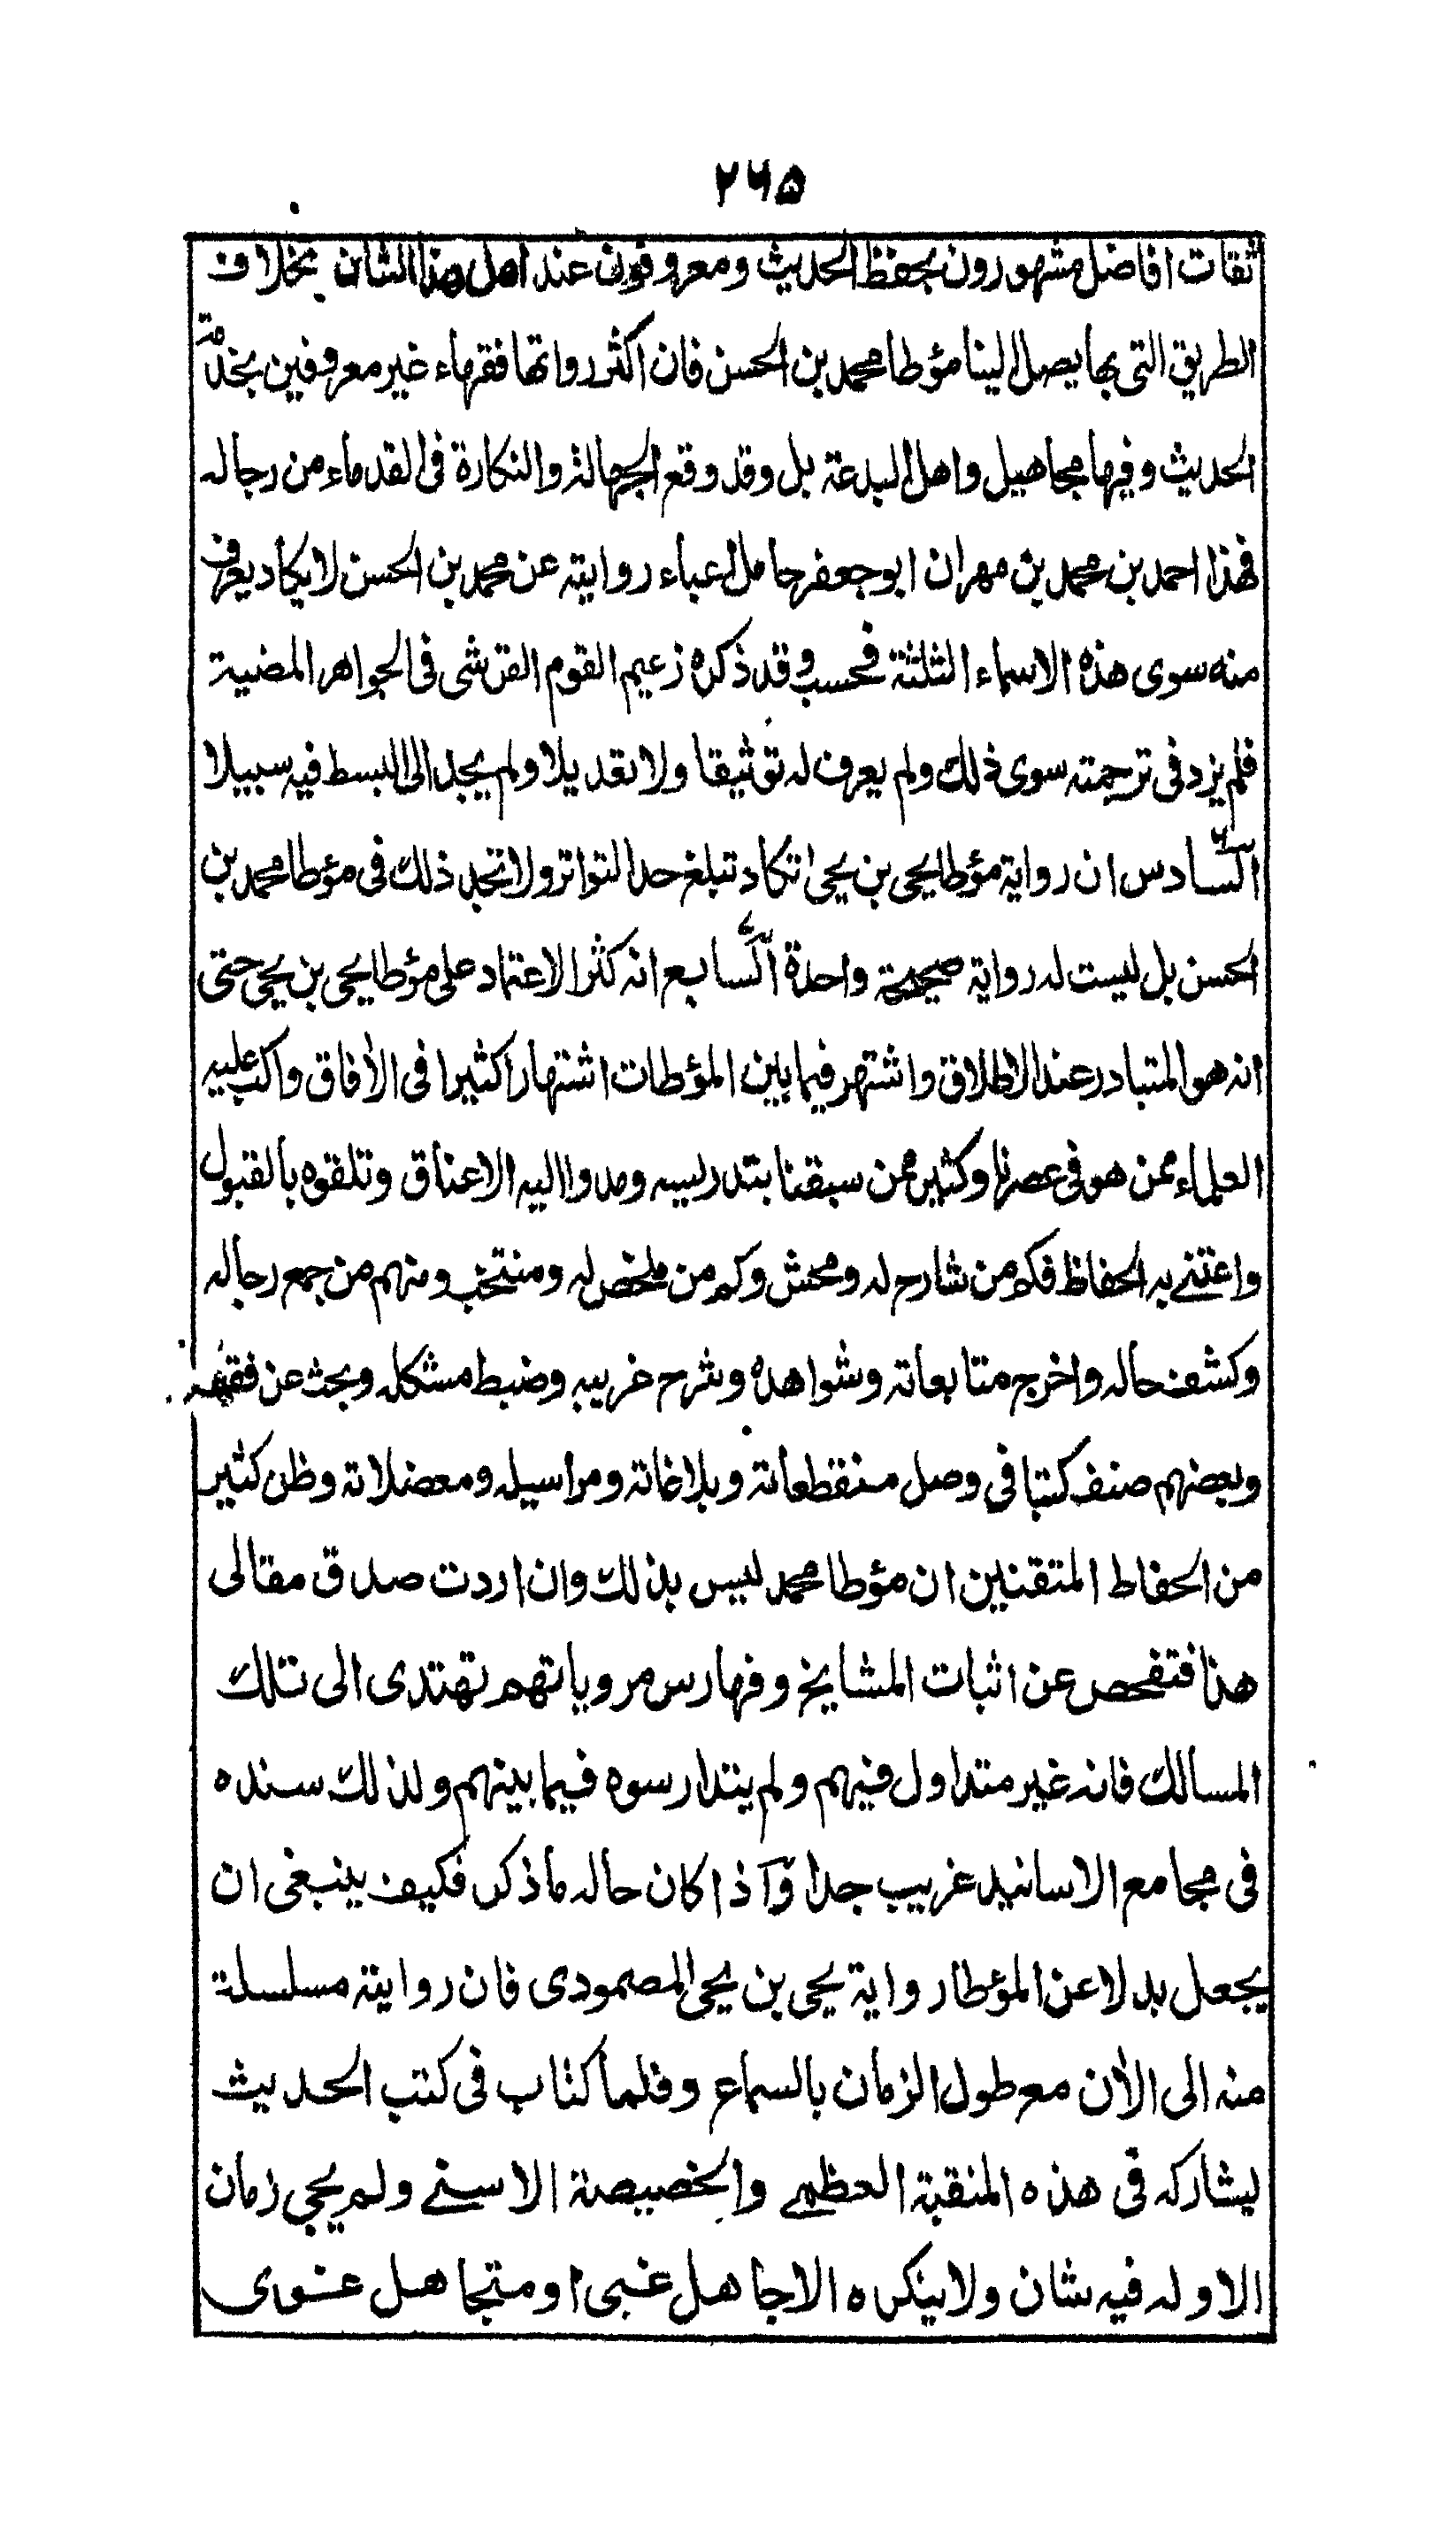 ۲۶۵
ثقات افاضل مشهورون بحفظ الحديث ومعروفون عند اهل هذا الشان بخلاف
الطريق التى بها يصل الينا مؤطا محمد بن الحسن فان اكثر رواتها فقهاء غير معروفين بخدمة
الحديث وفيها مجاهيل واهل البدعة بل وقد وقع الجهالة والنكارة فى القدماء من رجاله
فهذا احمد بن محمد بن مهران ابو جعفر حامل اعباء روايته عن محمد بن الحسن لا يكاد يعرف
منه سوى هذه الاسماء الثلثة فحسب وقد ذكره زعيم القوم القرشى فى الجواهر المضية
فلم يزد فى ترجمته سوى ذلك ولم يعرف له توثيقا ولا تعديلا ولم يجد الى البسط فيه سبيلا
السّادس ان رواية مؤطا يحيى بن يحيى تكاد تبلغ حد التواتر ولا تجد ذلك فى مؤطا محمد بن
الحسن بل ليست له رواية صحيحة واحدة السّابع انه كثر الاعتماد على مؤطا يحيى بن يحيى حتى
انه هو المتبادر عند الاطلاق واشتهر فيما بين المؤطات اشتهارا كثيرا فى الآفاق واكب عليه
العلماء ممن هو فى عصرنا وكثير ممن سبقنا بتدريسه ومدوا اليه الاعناق وتلقوه بالقبول
واعتنے به الحفاظ فكم من شارح له ومحش وكم من ملخص له ومنتخب ومنهم من جمع رجاله
وكشف حاله واخرج متابعاته وشواهده وشرح غريبه وضبط مشكله وبحث عن فقهه
وبعضهم صنف كتبا فى وصل منقطعاته وبلاغاته ومراسيله ومعضلاته وظن كثير
من الحفاط المتقنين ان مؤطا محمد ليس بذلك وان اردت صدق مقالى
هذا فتفحص عن اثبات المشايخ وفهارس مروياتهم تهتدى الى تلك
المسالك فانه غير متداول فيهم ولم يتدارسوه فيما بينهم ولذلك سنده
فى مجامع الاسانيد غريب جدا وآذا كان حاله ما ذكر فكيف ينبغى ان
يجعل بدلا عن المؤطا رواية يحيى بن يحيى المصمودى فان روايته مسلسلة
منه الى الآن مع طول الزمان بالسماع وقلما كتاب فى كتب الحديث
يشاركه فى هذه المنقبة العظمے والخصيصة الاسنے ولم يجى زمان
الاوله فيه شان ولا ينكره الا جاهل غبى او متجاهل غوى